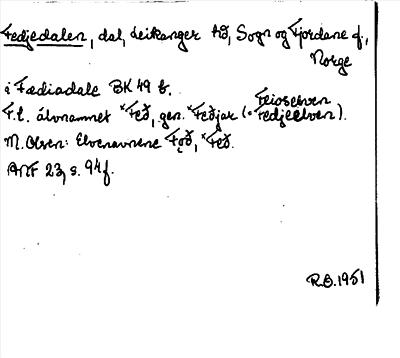 Fedjedalen, dal, Leikanger hd, Sogn og Fjordane f.,
Norge
i Fædiadale BK 49 b.
F.l. älvnamnet *Feð, gen. *Feðjar (= Fedjeelven).
Feioselven
M. Olsen: Elvenavnene Fǫð, *Feð.
ANF 23, s. 94 f.
R.O. 1951